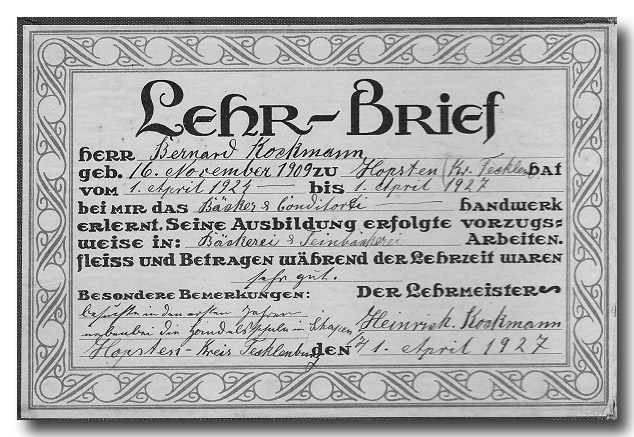 Lehr-Brief
Herr Bernard Kockmann
geb. 16. November 1909 zu Hopsten (Kr. Tecklenb. hat
vom 1. April 1924 bis 1. April 1927
bei mir das Bäcker & Conditorei Handwerk
erlernt. Seine Ausbildung erfolgte vorzugs-
weise in: Bäckerei & Feinbäckerei Arbeiten.
Fleiss und Betragen während der Lehrzeit waren
sehr gut.
Besondere Bemerkungen: Der Lehrmeister
besuchte in den ersten Jahren
nebenbei die Handelsschule in Heinrich. Kockmann
Hopsten - Kreis Tecklenburg den 1. April 1927